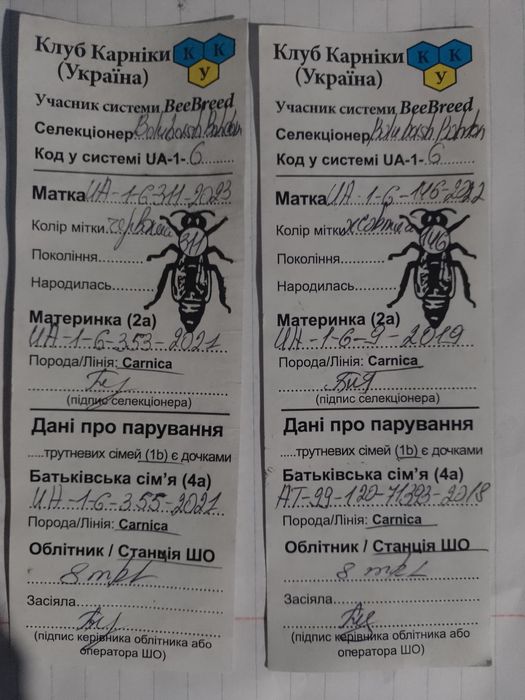 Клуб Карніки
(Україна)
К К У
Учасник системи BeeBreed
Селекціонер
Код у системі UA-1-6
Матка UA-1-6-311-2023
Колір мітки червоний
311
Покоління
Народилась
Материнка (2а)
UA-1-6-353-2021
Порода/Лінія: Carnica
(підпис селекціонера)
Дані про парування
.....трутневих сімей (1b) є дочками
Батьківська сім'я (4а)
UA-1-6-355-2021
Порода/Лінія: Carnica
Облітник / Станція ШО
Засіяла
(підпис керівника облітника або
оператора ШО)
Клуб Карніки
(Україна)
К К У
Учасник системи BeeBreed
Селекціонер
Код у системі UA-1-6
Матка UA-1-6-146-2022
Колір мітки жовтий
146
Покоління
Народилась
Материнка (2а)
UA-1-6-9-2019
Порода/Лінія: Carnica
(підпис селекціонера)
Дані про парування
.....трутневих сімей (1b) є дочками
Батьківська сім'я (4а)
AT-99-120-71393-2018
Порода/Лінія: Carnica
Облітник / Станція ШО
Засіяла
(підпис керівника облітника або
оператора ШО)